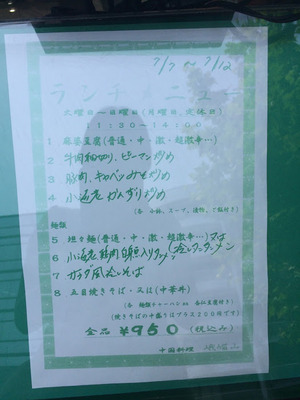 7/7 〜 7/12
ランチメニュー
火曜日〜日曜日(月曜日、定休日)
11:30〜14:00
1 麻婆豆腐(普通・中・激・超激辛…)
2 牛肉細切り、ピーマン炒め
3 豚肉、キャベツみそ炒め
4 小海老 かんずり炒め
(各 小鉢、スープ、漬物、ご飯付き)
麺飯
5 担々麺(普通・中・激・超激辛…)又は
6 小海老 入りタンメン (冷しタンタンメン
7 風 そば
8 五目焼きそば・又は(中華丼)
(各 麺類チャーハン 又は 杏仁豆腐付き)
(焼きそばの中盛りはプラス200円です)
全品 ¥950 (税込み)
中国料理 峨嵋山